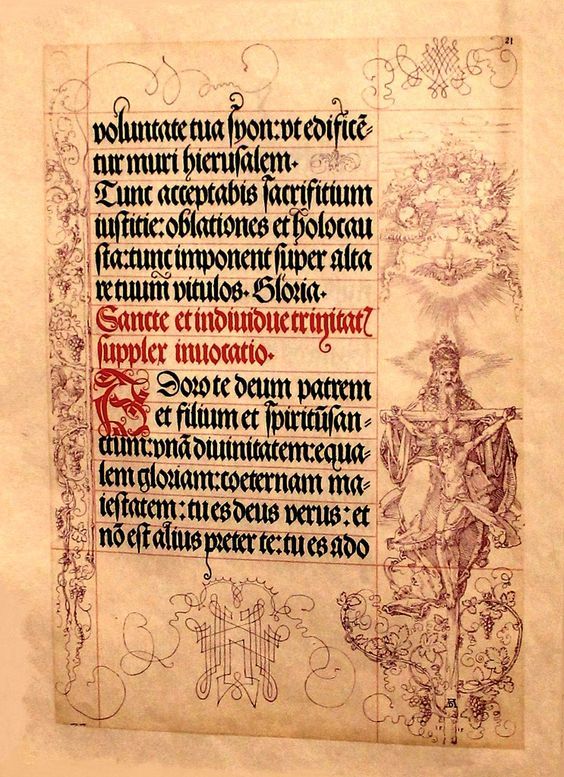 21
voluntate tua syon: vt edificē-
tur muri hierusalem.
Tunc acceptabis sacrifitium
iustitie: oblationes et holocau
sta: tunc imponent super alta
re tuum vitulos. Gloria.
Sancte et indiuidue trinitatꝭ
supplex inuocatio.
Adoro te deum patrem
et filium et spiritūsan-
ctum: vnā diuinitatem: equa-
lem gloriam: coeternam ma-
iestatem: tu es deus verus: et
nō est alius preter te: tu es ado
AD